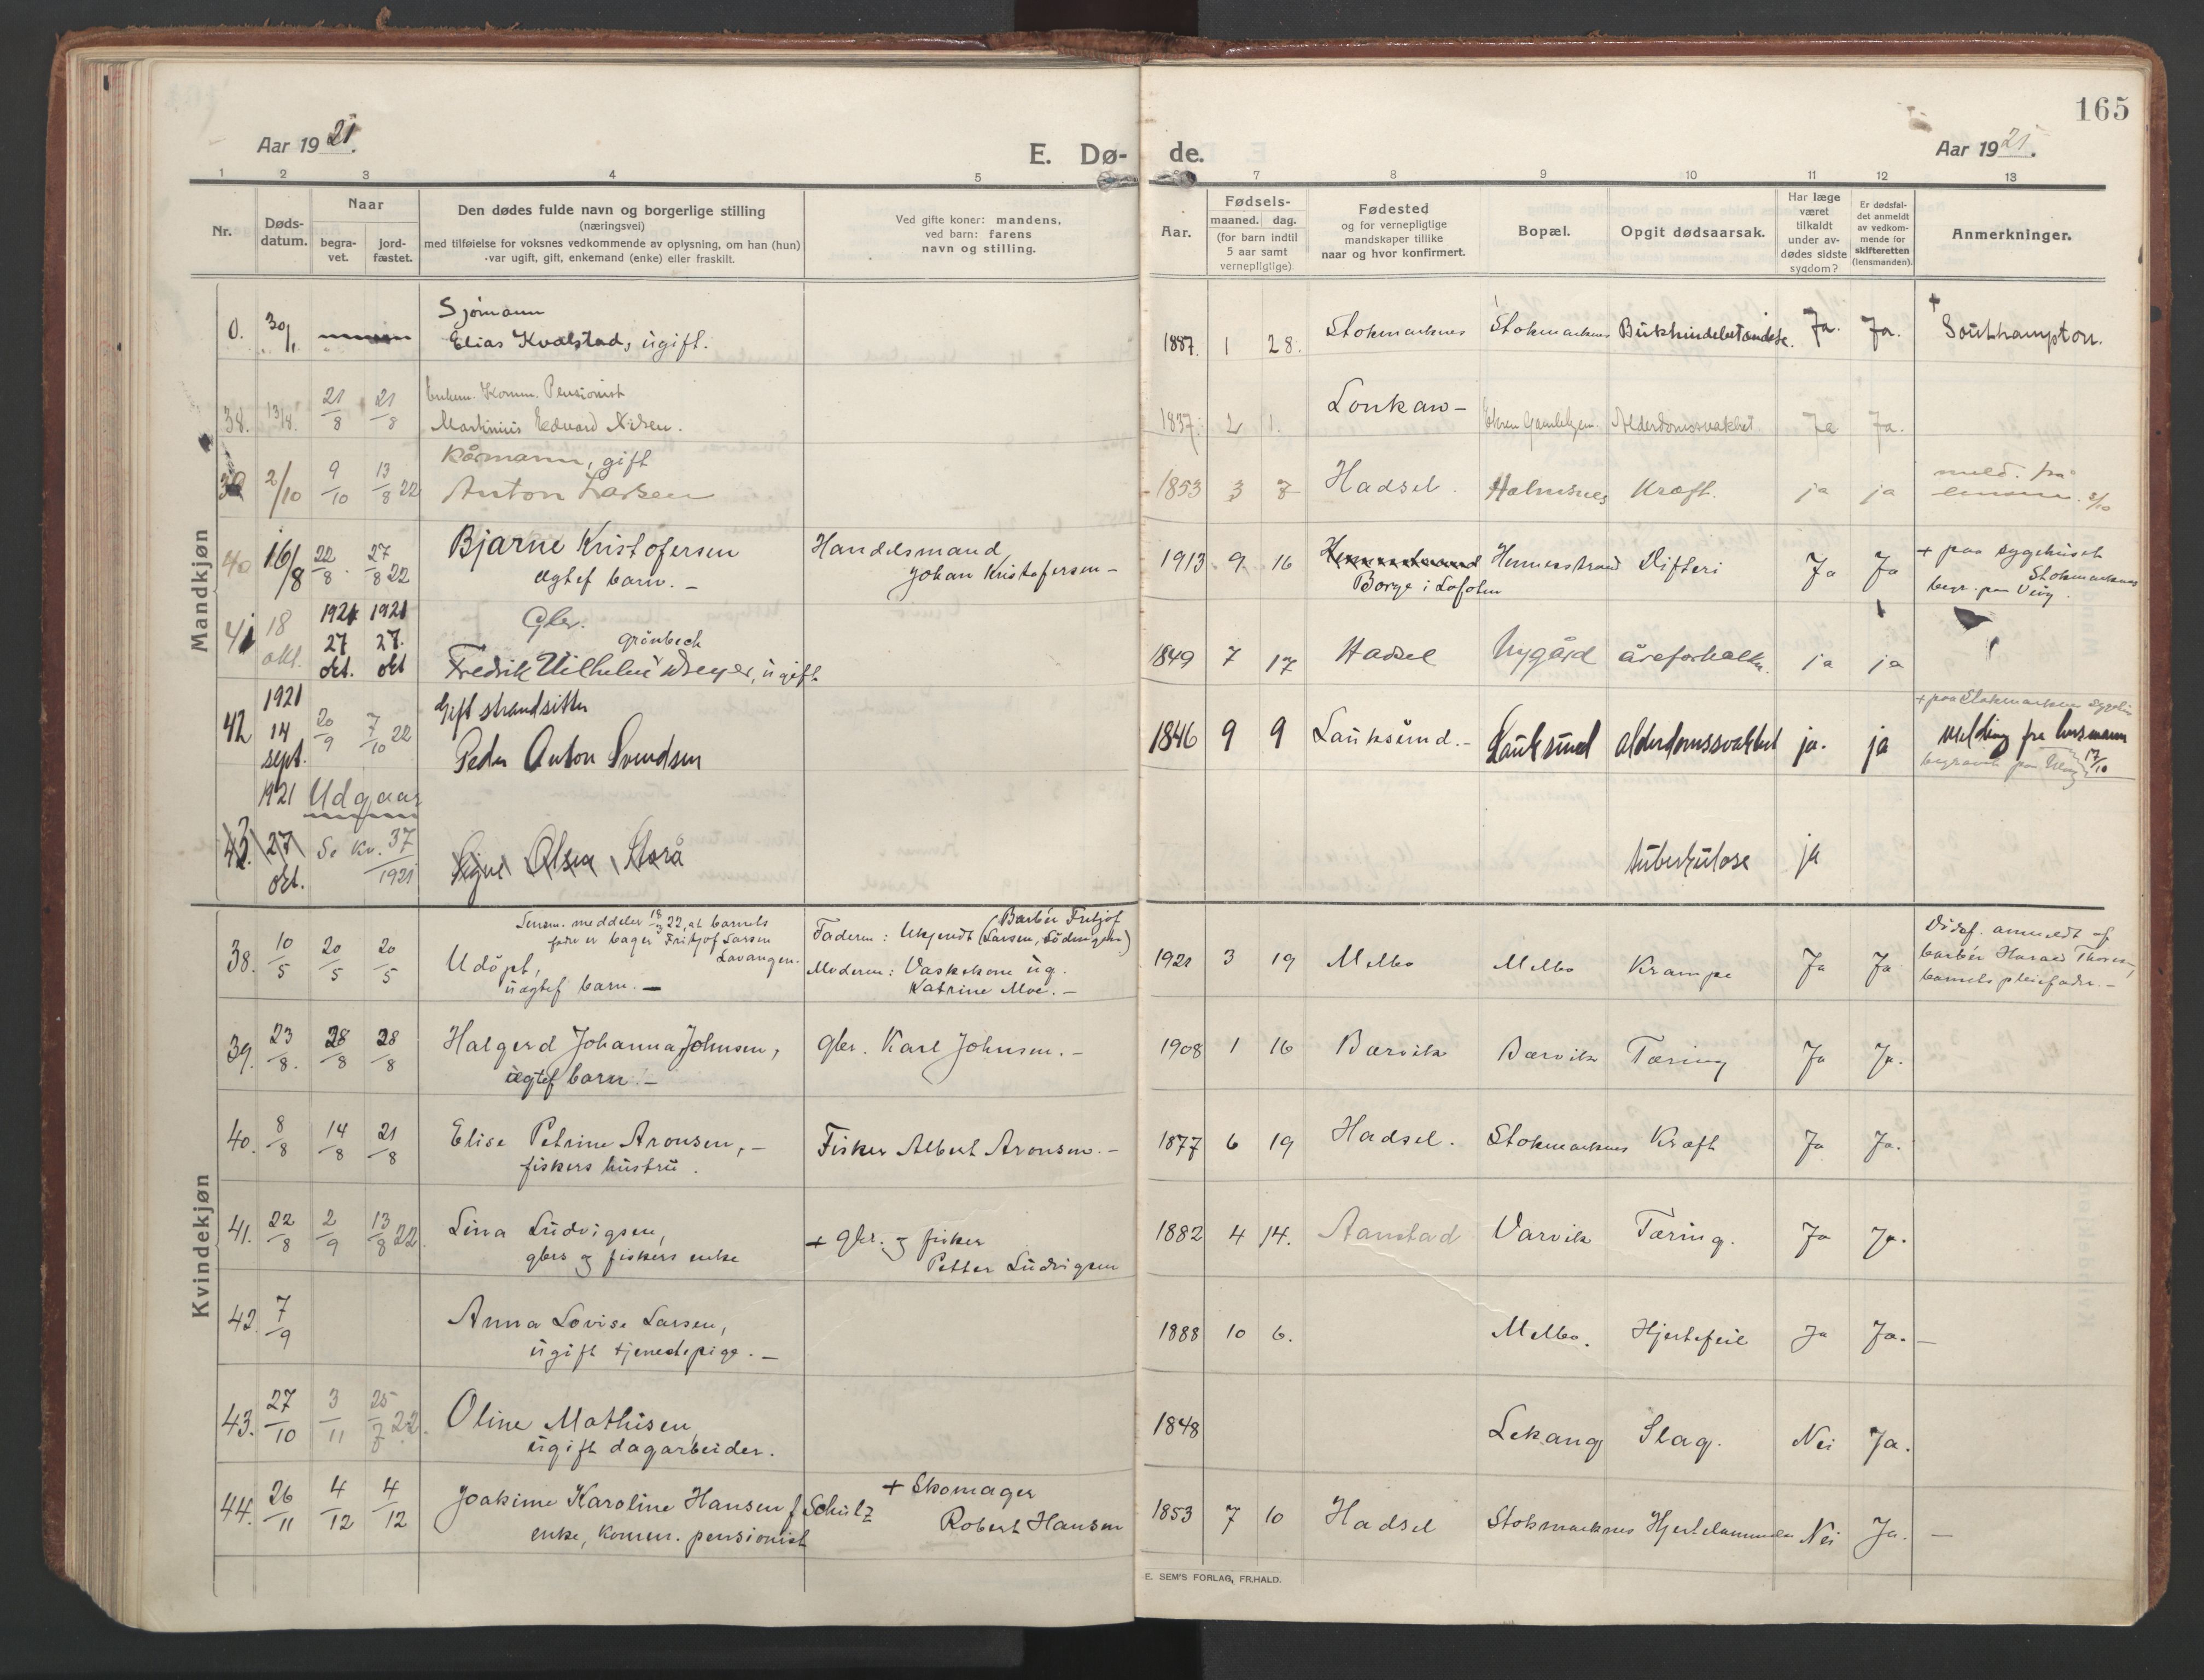 165
Aar 1921.
E. Dø- de.
Aar 1921.
1 2 3 4 5 7 8 9 10 11 12 13
Nr.
Døds-
datum.
Naar
begra-
vet.
jord-
fæstet.
Den dødes fulde navn og borgerlige stilling
(næringsvei)
med tilføielse for voksnes vedkommende av oplysning, om han (hun)
var ugift, gift, enkemand (enke) eller fraskilt.
Ved gifte koner: mandens,
ved barn: farens
navn og stilling.
Aar.
Fødsels-
maaned. dag.
(for barn indtil
5 aar samt
vernepligtige).
Fødested
og for vernepligtige
mandskaper tillike
naar og hvor konfirmert.
Bopæl.
Opgit dødsaarsak.
Har læge
været
tilkaldt
under av-
dødes sidste
sygdom?
Er dødsfal-
det anmeldt
av vedkom-
mende for
skifteretten
(lensmanden).
Anmerkninger.
Mandkjøn
Sjømann
0. 30/1 Elias Kvalstad, ugift. 1887. 1 28. Stokmarknes Stokmarknes Bukhindebetændelse. Ja. Ja. + Southampton.
Enkem. Komm. Pensionist
38. 13/8. 21/8 21/8 Martinius Edvard Nilsen. 1837. 2 1. Lonkan- Alderdomssvakhet Ja Ja.
Kårmann, gift
39 2/10 9/10 13/8 22 Anton Larsen 1853 3 8 Hadsel. Holmsnes Kræft. ja ja meld. fra
lensm. 2/10
40 16/8 22/8. 27/8 22 Bjarne Kristofersen
ægtef barn. -
Handelsmand
Johan Kristofersen -
1913 9 16 Borge i Lofoten Hennesstrand Difteri Ja Ja + paa sygehuset
Stokmarknes
begr. paa Uløy.
Gbr.
Grönbech
41 18 okt. 1921 27 okt. 1921 27. okt Fredrik Vilhelm Dreyer, ugift
1849 7 17 Hadsel Nygård åreforkalkn. ja ja
Gift strandsitter
42 1921 14 sept. 20/9 7/10 22 Peder Anton Svendsen
1846 9 9 Lauksund.- Lauksund alderdomssvakhet ja. ja + paa Stokmarknes sygehus
melding fra lensmann 17/10
1921 Udgaar
43. 27 okt. Se Kv. 37/1921 Signe Olsen Storå tuberkulose ja
Kvindekjøn
Lensm. meddeler 18/3 22, at barnets
fader er bager Fritjof Larsen
Lavangen.
38. 10/5 20/5 20/5 Udöpt,
uægtef barn. -
Faderen: Ukjendt (Barbér Fritjof
Larsen, Lödingen)
Moderen: Vaskekone ug.
Katrine Moe. -
1921 3 19 Melbo Melbo Krampe Ja Ja Dødsf. anmeldt af
barbér Harald Thoresen,
barnets pleiefader. -
39. 23/8. 28/8 28/8 Halgerd Johanna Johnsen,
ægtef barn. -
gbr. Karl Johnsen. -
1908 1 16 Barvik Barvik Tæring Ja Ja.
40. 8/8 14/8 21/8 Elise Petrine Aronsen, -
fiskers hustru.
Fisker Albert Aronsen. -
1877 6 19 Hadsel. Stokmarknes Kræft Ja Ja.
41. 22/8 2/9 13/8 22. Lina Ludvigsen,
gbrs og fiskers enke
+ gbr. og fisker
Petter Ludvigsen
1882 4 14. Aanstad Varvik Tæring. Ja Ja.
42. 7/9 Anna Lovise Larsen,
ugift tjenestepige. -
1888 10 6. Melbo. Hjertefeil Ja Ja. -
43. 27/10 3/11 25/7 22. Oline Mathisen,
ugift dagarbeider.
1848 Lekang Slag. Nei Ja.
44. 26/11 4/12 4/12 Joakime Karoline Hansen f Schulz
enke, komm. pensionist
+ Skomager
Robert Hansen
1853 7 10 Hadsel Stokmarknes Hjertelammelse Nei Ja. -
E. SEM'S FORLAG, FR.HALD.